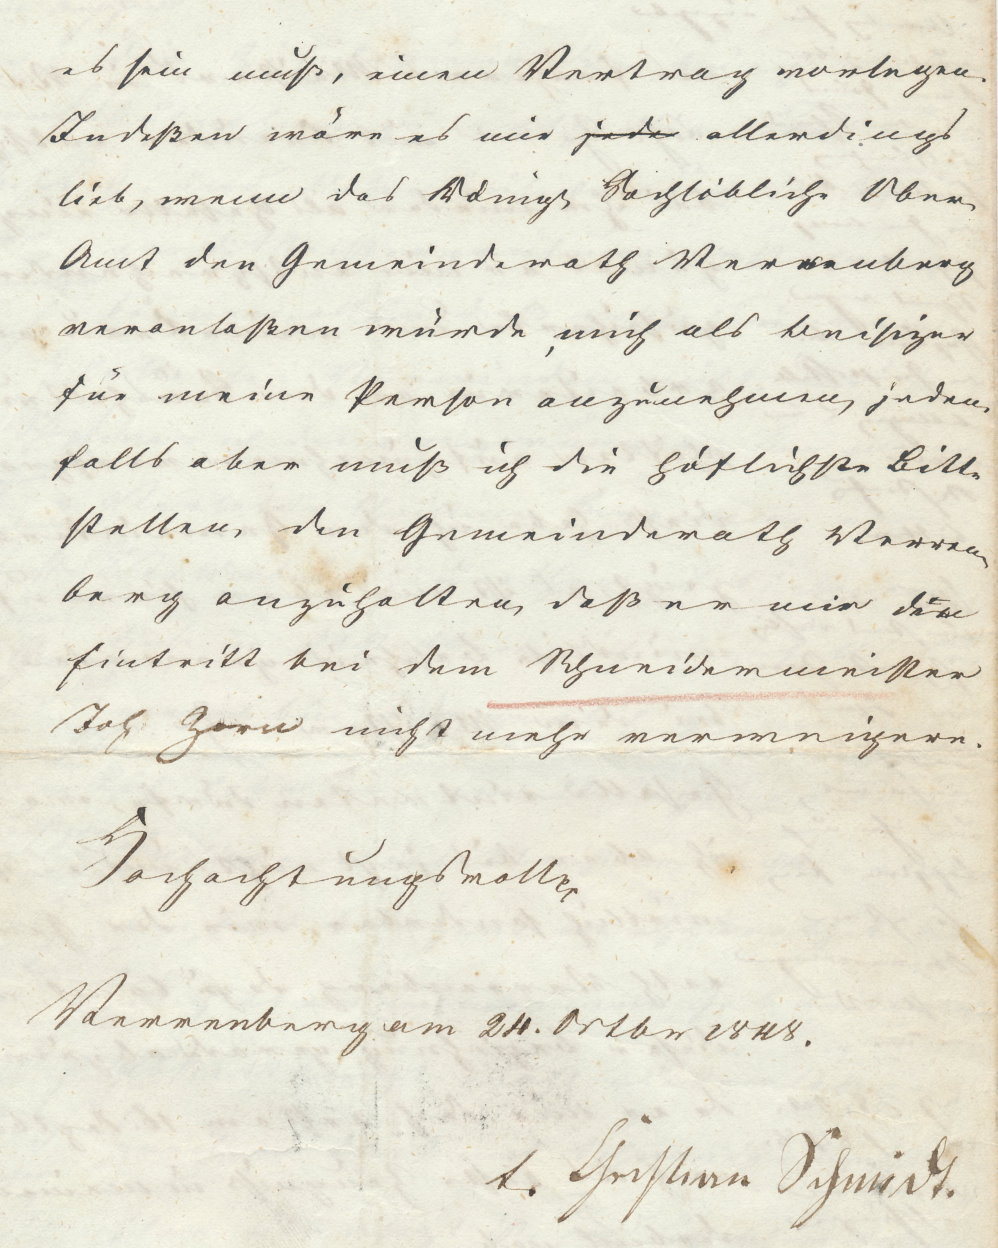 es sein muß, einen Vertrag vorlegen.
Indeßen wäre es mir jede allerdings
lieb, wenn das Königl Hochlöbliche Ober
Amt den Gemeinderath Verrenberg
veranlaßen würde, mich als Beisizer
für meine Person anzunehmen, jeden
falls aber muß ich die höflichste Bitte
stellen, den Gemeinderath Verren
berg anzuhalten, daß er mir den
Eintritt bei dem Schneidermeister
Joh Zorn nicht mehr verweigere.
Hochachtungsvollst
Verrenberg am 24. Octbr 1848.
t. Christian Schmidt.